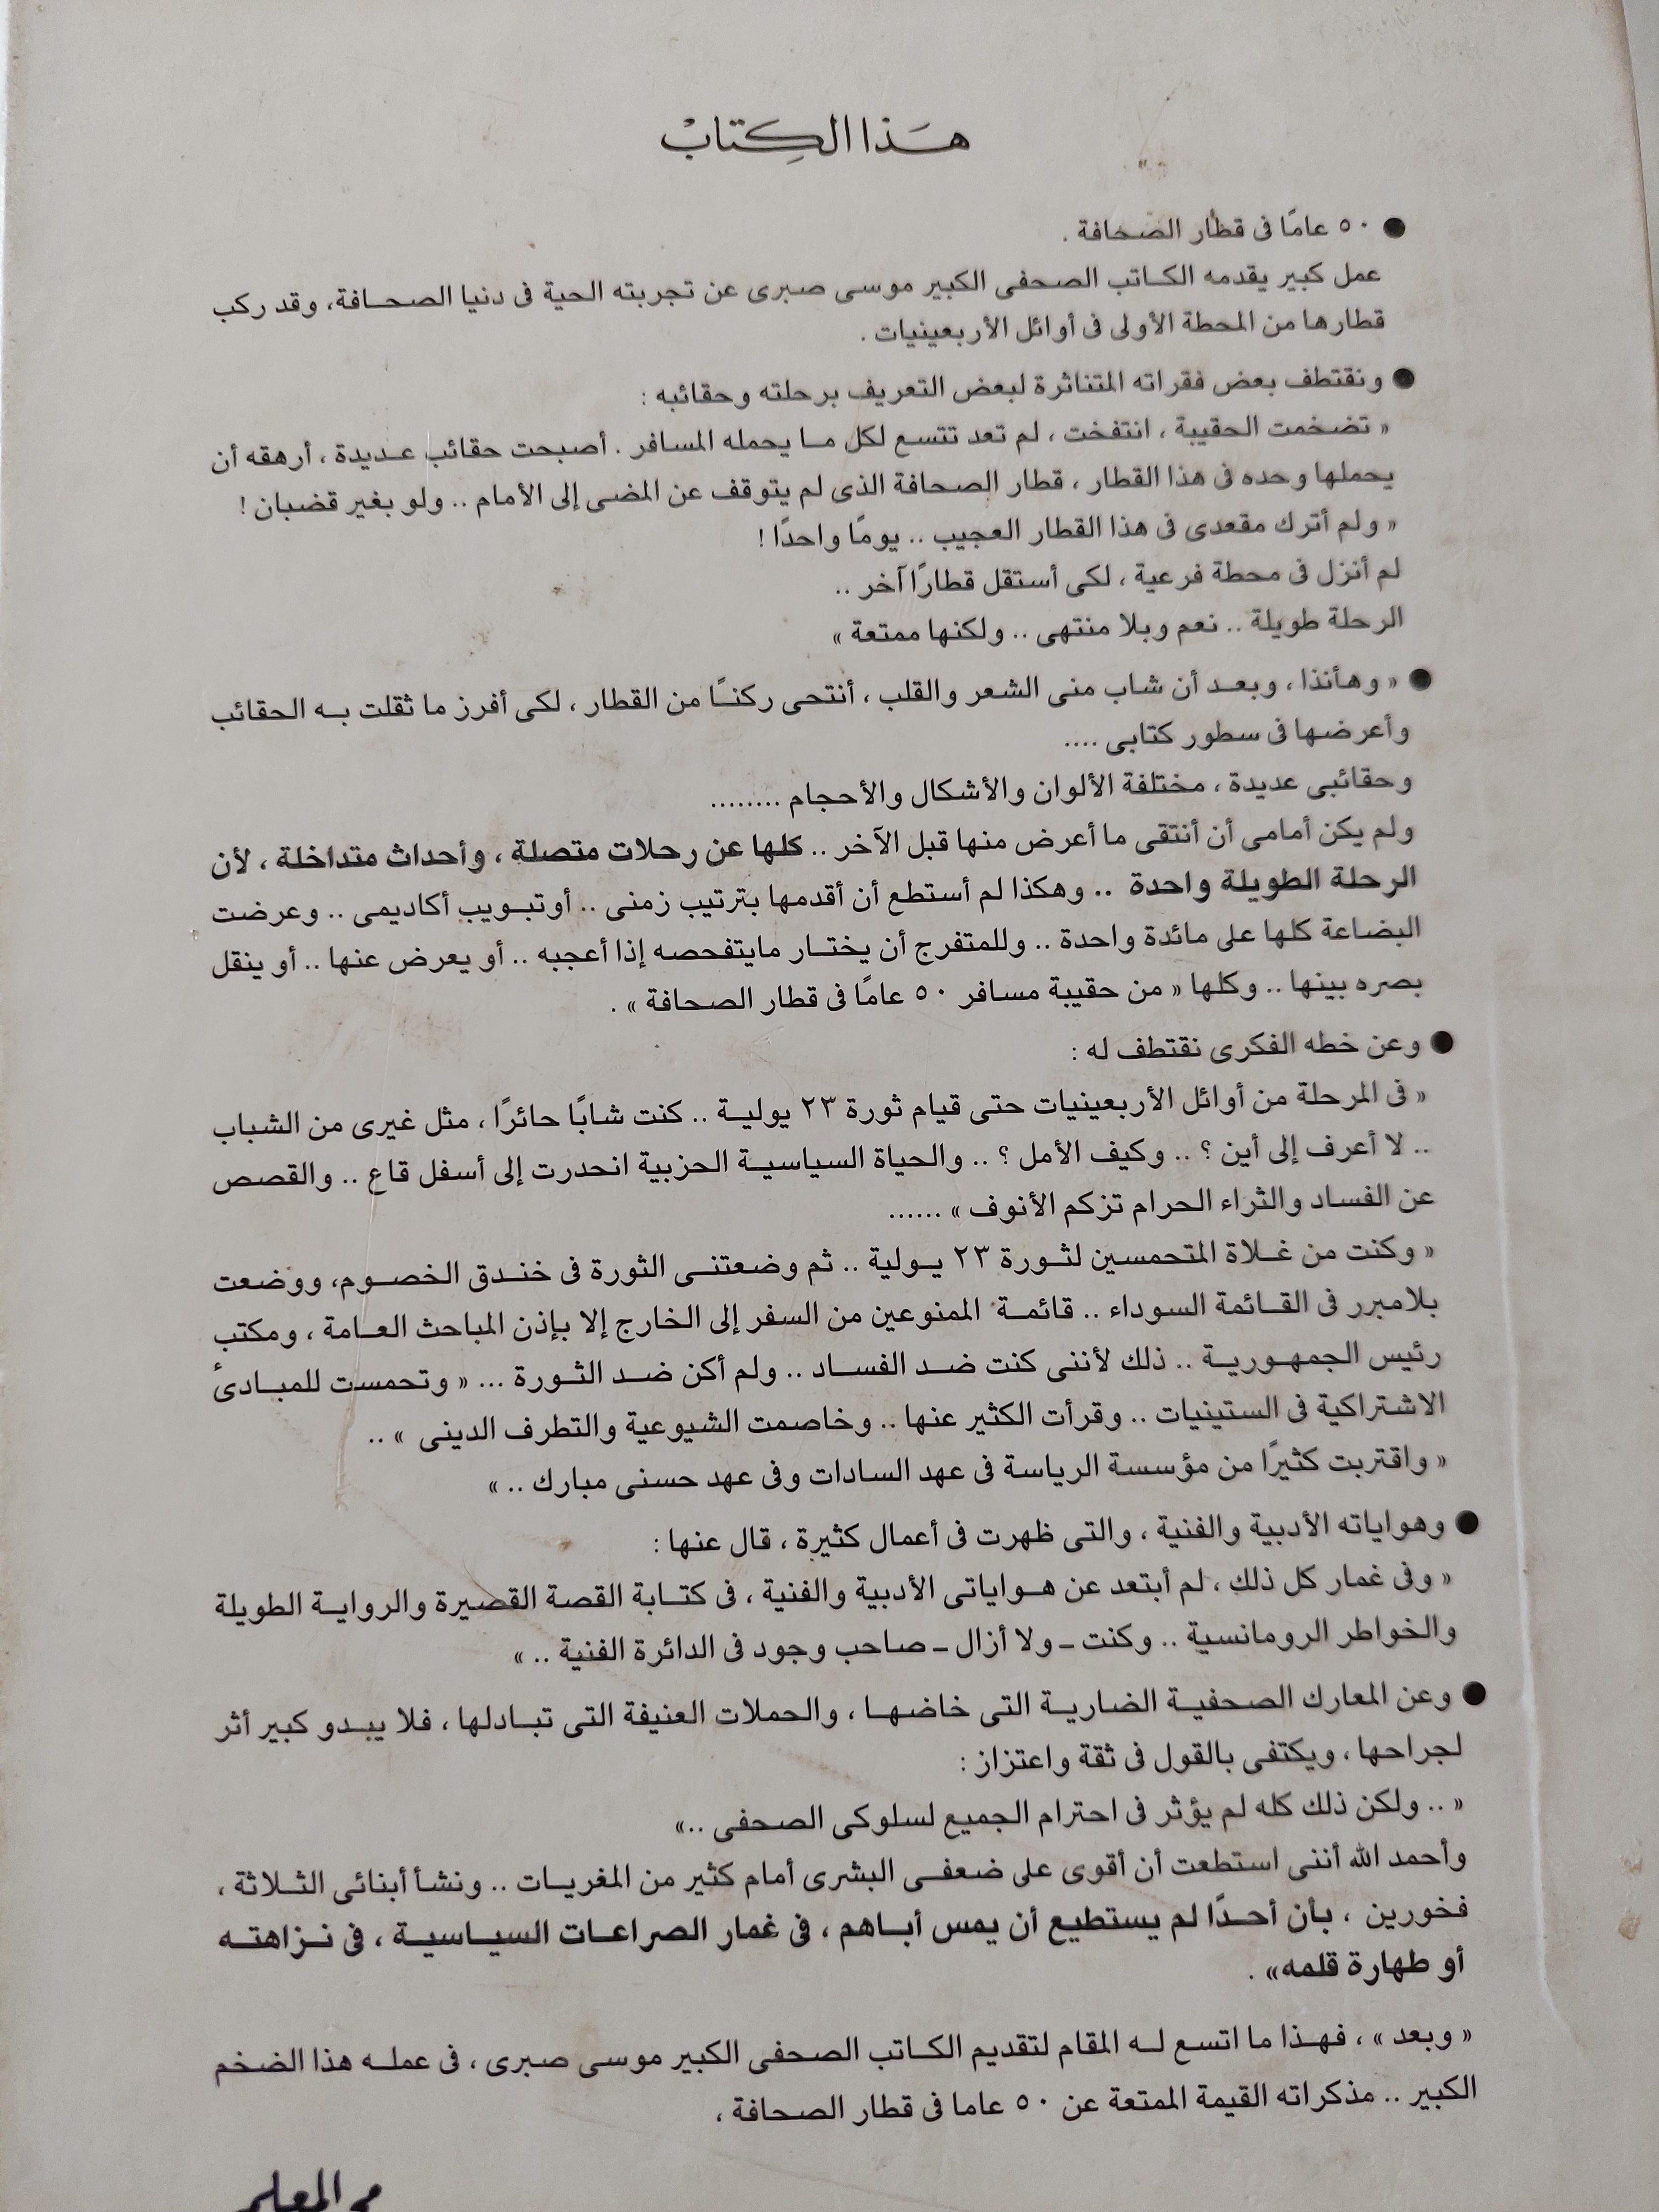 هَذا الكِتابْ
● ٥٠ عامًا فى قطار الصحافة .
عمل كبير يقدمه الكاتب الصحفى الكبير موسى صبرى عن تجربته الحية فى دنيا الصحافة، وقد ركب
قطارها من المحطة الأولى فى أوائل الأربعينيات .
● ونقتطف بعض فقراته المتناثرة لبعض التعريف برحلته وحقائبه :
« تضخمت الحقيبة ، انتفخت ، لم تعد تتسع لكل ما يحمله المسافر . أصبحت حقائب عديدة ، أرهقه أن
يحملها وحده فى هذا القطار ، قطار الصحافة الذى لم يتوقف عن المضى إلى الأمام .. ولو بغير قضبان !
« ولم أترك مقعدى فى هذا القطار العجيب .. يومًا واحدًا !
لم أنزل فى محطة فرعية ، لكى أستقل قطارًا آخر ..
الرحلة طويلة .. نعم وبلا منتهى .. ولكنها ممتعة »
● « وهأنذا ، وبعد أن شاب منى الشعر والقلب ، أنتحى ركنًا من القطار ، لكى أفرز ما ثقلت به الحقائب
وأعرضها فى سطور كتابى ....
وحقائبى عديدة ، مختلفة الألوان والأشكال والأحجام ........
ولم يكن أمامى أن أنتقى ما أعرض منها قبل الآخر .. كلها عن رحلات متصلة ، وأحداث متداخلة ، لأن
الرحلة الطويلة واحدة .. وهكذا لم أستطع أن أقدمها بترتيب زمنى .. أوتبويب أكاديمى .. وعرضت
البضاعة كلها على مائدة واحدة .. وللمتفرج أن يختار مايتفحصه إذا أعجبه .. أو يعرض عنها .. أو ينقل
بصره بينها .. وكلها « من حقيبة مسافر ٥٠ عامًا فى قطار الصحافة » .
● وعن خطه الفكرى نقتطف له :
« فى المرحلة من أوائل الأربعينيات حتى قيام ثورة ٢٣ يولية .. كنت شابًا حائرًا ، مثل غيرى من الشباب
.. لا أعرف إلى أين ؟ .. وكيف الأمل ؟ .. والحياة السياسية الحزبية انحدرت إلى أسفل قاع .. والقصص
عن الفساد والثراء الحرام تزكم الأنوف » ......
« وكنت من غلاة المتحمسين لثورة ٢٣ يولية .. ثم وضعتنى الثورة فى خندق الخصوم، ووضعت
بلامبرر فى القائمة السوداء .. قائمة الممنوعين من السفر إلى الخارج إلا بإذن المباحث العامة ، ومكتب
رئيس الجمهورية .. ذلك لأننى كنت ضد الفساد .. ولم أكن ضد الثورة ... « وتحمست للمبادئ
الاشتراكية فى الستينيات .. وقرأت الكثير عنها .. وخاصمت الشيوعية والتطرف الدينى » ..
« واقتربت كثيرًا من مؤسسة الرياسة فى عهد السادات وفى عهد حسنى مبارك .. »
● وهواياته الأدبية والفنية ، والتى ظهرت فى أعمال كثيرة ، قال عنها :
« وفى غمار كل ذلك ، لم أبتعد عن هواياتى الأدبية والفنية ، فى كتابة القصة القصيرة والرواية الطويلة
والخواطر الرومانسية .. وكنت ـ ولا أزال ـ صاحب وجود فى الدائرة الفنية .. »
● وعن المعارك الصحفية الضارية التى خاضها ، والحملات العنيفة التى تبادلها ، فلا يبدو كبير أثر
لجراحها ، ويكتفى بالقول فى ثقة واعتزاز :
« .. ولكن ذلك كله لم يؤثر فى احترام الجميع لسلوكى الصحفى ..»
وأحمد الله أننى استطعت أن أقوى على ضعفى البشرى أمام كثير من المغريات .. ونشأ أبنائى الثلاثة ،
فخورين ، بأن أحدًا لم يستطيع أن يمس أباهم ، فى غمار الصراعات السياسية ، فى نزاهته
أو طهارة قلمه» .
« وبعد » ، فهذا ما اتسع له المقام لتقديم الكاتب الصحفى الكبير موسى صبرى ، فى عمله هذا الضخم
الكبير .. مذكراته القيمة الممتعة عن ٥٠ عاما فى قطار الصحافة ،
المعلم